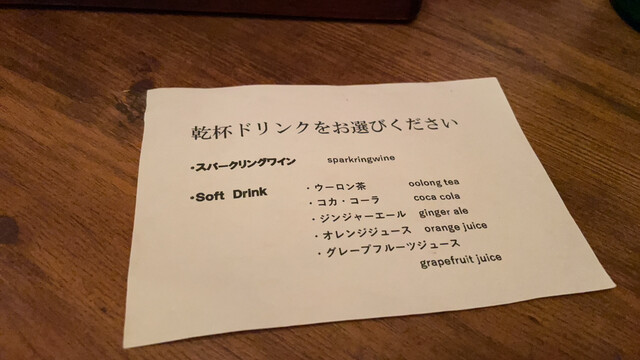 乾杯ドリンクをお選びください
・スパークリングワイン sparkringwine
・Soft Drink ・ウーロン茶 oolong tea
・コカ・コーラ coca cola
・ジンジャーエール ginger ale
・オレンジジュース orange juice
・グレープフルーツジュース
grapefruit juice